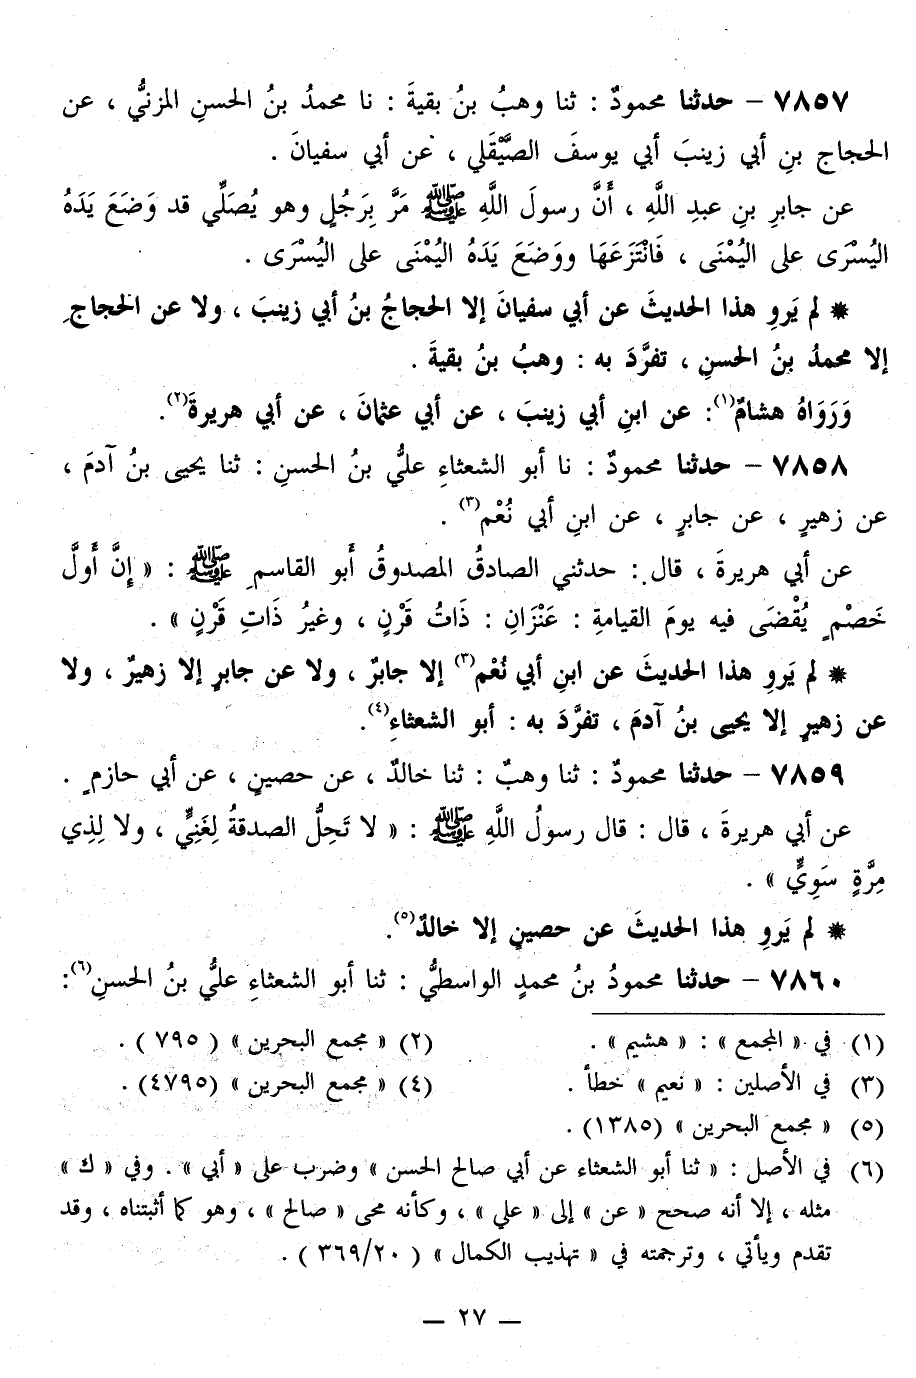 ٧٨٥٧ – حدثنا محمودٌ : ثنا وهبُ بنُ بقيةَ : نا محمدُ بنُ الحسنِ المزنيُّ ، عن
الحجاج بنِ أبي زينبَ أبي يوسفَ الصَّيْقَلي ، عن أبي سفيانَ .
عن جابرِ بنِ عبدِ اللَّهِ ، أَنَّ رسولَ اللَّهِ ﷺ مَرَّ بِرَجُلٍ وهو يُصَلِّي قد وَضَعَ يَدَهُ
اليُسْرَى على اليُمْنَى ، فَانْتَزَعَهَا ووَضَعَ يَدَهُ اليُمْنَى على اليُسْرَى .
* لم يَروِ هذا الحديثَ عن أبي سفيانَ إلا الحجاجُ بنُ أبي زينبَ ، ولا عن الحجاجِ
إلا محمدُ بنُ الحسنِ ، تفرَّدَ به : وهبُ بنُ بقيةَ .
وَرَوَاهُ هشامٌ(١): عن ابنِ أبي زينبَ ، عن أبي عثمانَ ، عن أبي هريرةَ(٢).
٧٨٥٨ – حدثنا محمودٌ : نا أبو الشعثاءِ عليُّ بنُ الحسنِ : ثنا يحيى بنُ آدمَ ،
عن زهيرٍ ، عن جابرٍ ، عن ابنِ أبي نُعْمٍ(٣) .
عن أبي هريرةَ ، قال : حدثني الصادقُ المصدوقُ أَبو القاسمِ ﷺ : « إِنَّ أَولَّ
خَصْمٍ يُقْضَى فيه يومَ القيامةِ : عَنْزَانِ : ذَاتُ قَرْنٍ ، وغيرُ ذَاتِ قَرْنٍ » .
* لم يَروِ هذا الحديثَ عن ابنِ أبي نُعْمٍ(٣) إلا جابرٌ ، ولا عن جابرٍ إلا زهيرٌ ، ولا
عن زهيرٍ إلا يحيى بنُ آدمَ ، تفرَّدَ به : أبو الشعثاءِ(٤).
٧٨٥٩ – حدثنا محمودٌ : ثنا وهبٌ : ثنا خالدٌ ، عن حصينٍ ، عن أبي حازمٍ .
عن أبي هريرةَ ، قال : قال رسولُ اللَّهِ ﷺ : « لا تَحِلُّ الصدقةُ لِغَنِيٍّ ، ولا لِذِي
مِرَّةٍ سَوِيٍّ » .
* لم يَروِ هذا الحديثَ عن حصينٍ إلا خالدٌ(٥).
٧٨٦٠ – حدثنا محمودُ بنُ محمدٍ الواسطيُّ : ثنا أبو الشعثاءِ عليُّ بنُ الحسنِ(٦):
(١) في « المجمع » : « هشيم » .
(٢) « مجمع البحرين » ( ٧٩٥ ) .
(٣) في الأصلين : « نعيم » خطأ .
(٤) « مجمع البحرين » (٤٧٩٥) .
(٥) « مجمع البحرين » (١٣٨٥) .
(٦) في الأصل : « ثنا أبو الشعثاء عن أبي صالح الحسن » وضرب على « أبي » . وفي « ك »
مثله ، إلا أنه صحح « عن » إلى « علي » ، وكأنه محى « صالح » ، وهو كما أثبتناه ، وقد
تقدم ويأتي ، وترجمته في « تهذيب الكمال » ( ٣٦٩/٢٠ ) .
— ٢٧ —